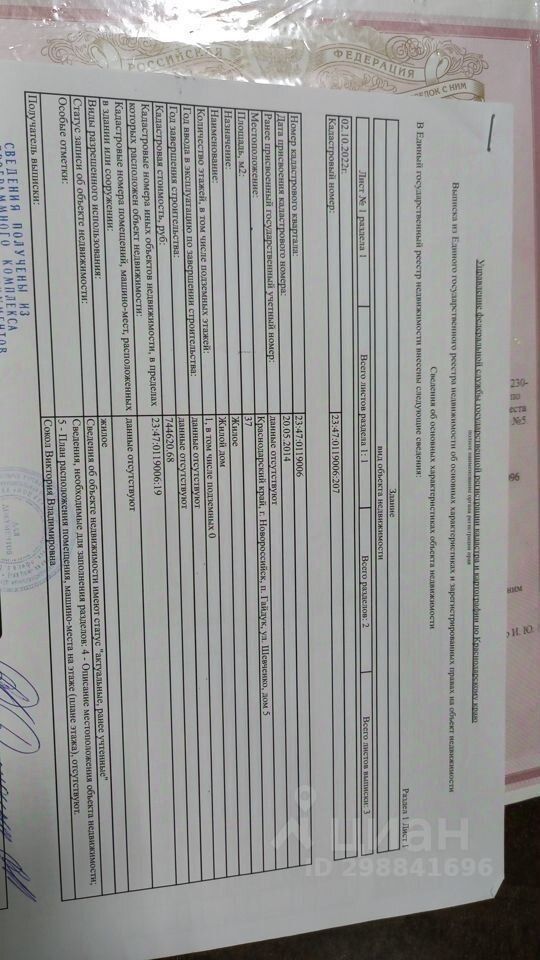 РОССИЙСКАЯ ФЕДЕРАЦИЯ
Управление федеральной службы государственной регистрации кадастра и картографии по Краснодарскому краю
полное наименование органа регистрации прав
Выписка из Единого государственного реестра недвижимости об основных характеристиках и зарегистрированных правах на объект недвижимости
Сведения об основных характеристиках объекта недвижимости
В Единый государственный реестр недвижимости внесены следующие сведения:
Раздел 1 Лист 1
Здание
вид объекта недвижимости
Лист № 1 раздела 1 Всего листов раздела 1: 1 Всего разделов: 2 Всего листов выписки: 3
02.10.2022г.
Кадастровый номер: 23:47:0119006:207
Номер кадастрового квартала: 23:47:0119006
Дата присвоения кадастрового номера: 20.05.2014
Ранее присвоенный государственный учетный номер: данные отсутствуют
Местоположение: Краснодарский край, г. Новороссийск, п. Гайдук, ул. Шевченко, дом 5
Площадь, м2: 37
Назначение: Жилое
Наименование: Жилой дом
Количество этажей, в том числе подземных этажей: 1, в том числе подземных 0
Год ввода в эксплуатацию по завершении строительства: данные отсутствуют
Год завершения строительства: данные отсутствуют
Кадастровая стоимость, руб: 744620.68
Кадастровые номера иных объектов недвижимости, в пределах 23:47:0119006:19
которых расположен объект недвижимости:
Кадастровые номера помещений, машино-мест, расположенных данные отсутствуют
в здании или сооружении:
Виды разрешенного использования: жилое
Статус записи об объекте недвижимости: Сведения об объекте недвижимости имеют статус "актуальные, ранее учтенные"
Особые отметки: Сведения, необходимые для заполнения разделов: 4 - Описание местоположения объекта недвижимости;
5 - План расположения помещения, машино-места на этаже (плане этажа), отсутствуют.
Получатель выписки: Союз Виктория Владимировна
СВЕДЕНИЯ ПОЛУЧЕНЫ ИЗ
ПРОГРАММНОГО КОМПЛЕКСА
ДЛЯ
ДОКУМЕНТОВ
230-
по
еста
№5
096
ним
И. Ю.
циан
ID 298841696